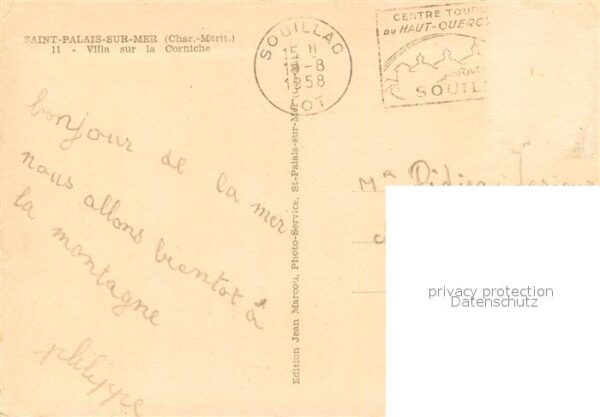 SAINT-PALAIS-SUR-MER (Char.-Marit.)
11 - Villa sur la Corniche
SOUILLAC
15 H
19-8
1958
LOT
CENTRE TOURI
DU HAUT-QUERC
SOUIL
bonjour de la mer
nous allons bientot à
la montagne
philippe
Edition Jean Marcou, Photo-Service, St-Palais-sur-Mer
Mr Didier
privacy protection
Datenschutz